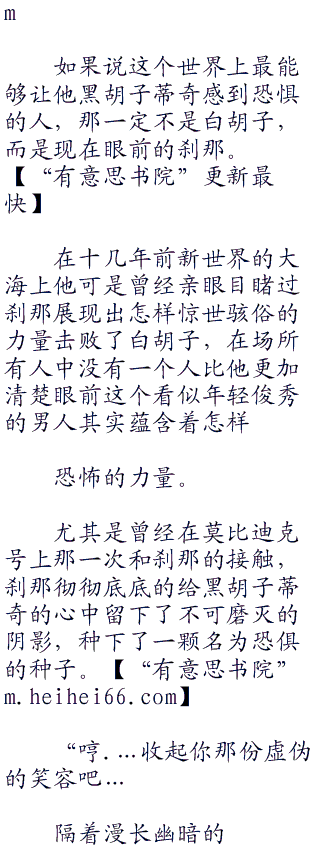 m
如果说这个世界上最能
够让他黑胡子蒂奇感到恐惧
的人，那一定不是白胡子，
而是现在眼前的刹那。
【“有意思书院”更新最
快】
在十几年前新世界的大
海上他可是曾经亲眼目睹过
刹那展现出怎样惊世骇俗的
力量击败了白胡子，在场所
有人中没有一个人比他更加
清楚眼前这个看似年轻俊秀
的男人其实蕴含着怎样
恐怖的力量。
尤其是曾经在莫比迪克
号上那一次和刹那的接触，
刹那彻彻底底的给黑胡子蒂
奇的心中留下了不可磨灭的
阴影，种下了一颗名为恐惧
的种子。【“有意思书院”
m.heihei66.com】
“哼....收起你那份虚伪
的笑容吧...
隔着漫长幽暗的